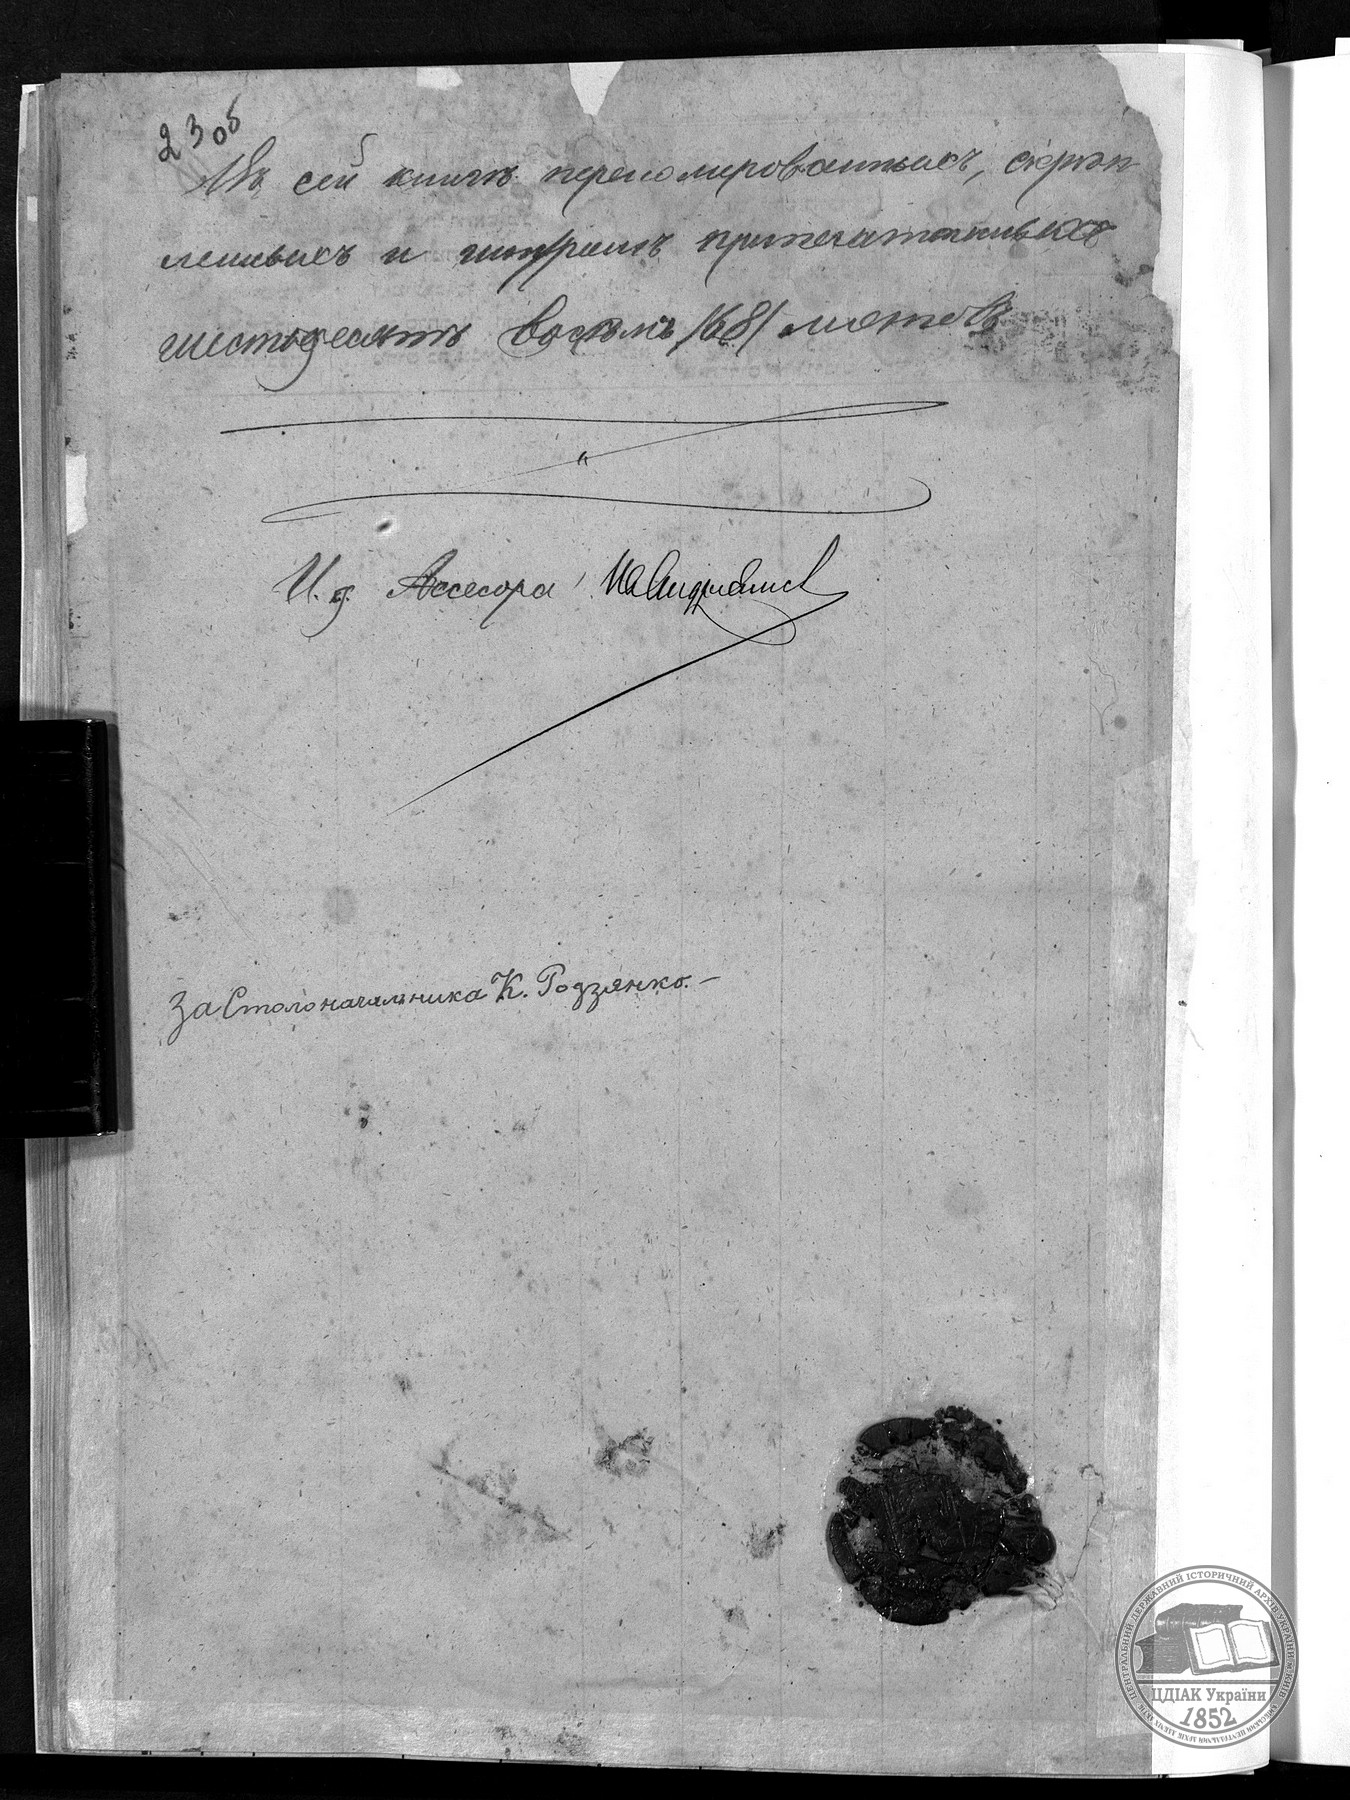 230б
Въ сей книгѣ перенумерованныхъ, скрѣп
ленныхъ и шнуромъ припечатанныхъ
шестьдесятъ восемь /68/ листовъ
И. д. Ассесора
За Столоначальника К. Родзянко.–
ЦЕНТРАЛЬНИЙ ДЕРЖАВНИЙ ІСТОРИЧНИЙ АРХІВ УКРАЇНИ М. КИЇВ
ЦДІАК України
1852